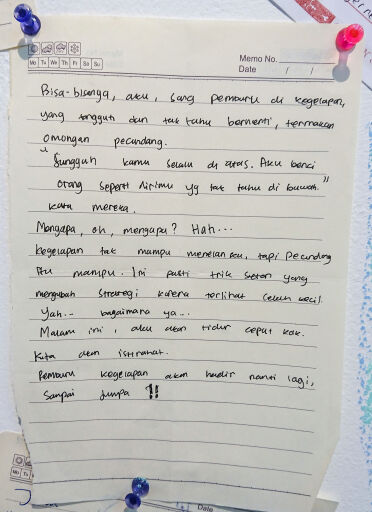 Memo No.
Mo Tu We Th Fr Sa Su
Date / /
Bisa-bisanya, aku, sang pemburu di kegelapan,
yang tangguh dan tak tahu berhenti, termakan
omongan pecundang.
"Sungguh kamu selalu di atas. Aku benci
orang seperti dirimu yg tak tahu di bawah."
kata mereka.
Mengapa, oh, mengapa? Hah...
Kegelapan tak mampu menelanku, tapi pecundang
itu mampu. Ini pasti trik setan yang
mengubah strategi karena terlihat celah kecil.
Yah.. bagaimana ya...
Malam ini, aku akan tidur cepat kok.
Kita akan istirahat.
Pemburu kegelapan akan hadir nanti lagi,
Sampai jumpa !!
Mo Tu
Date